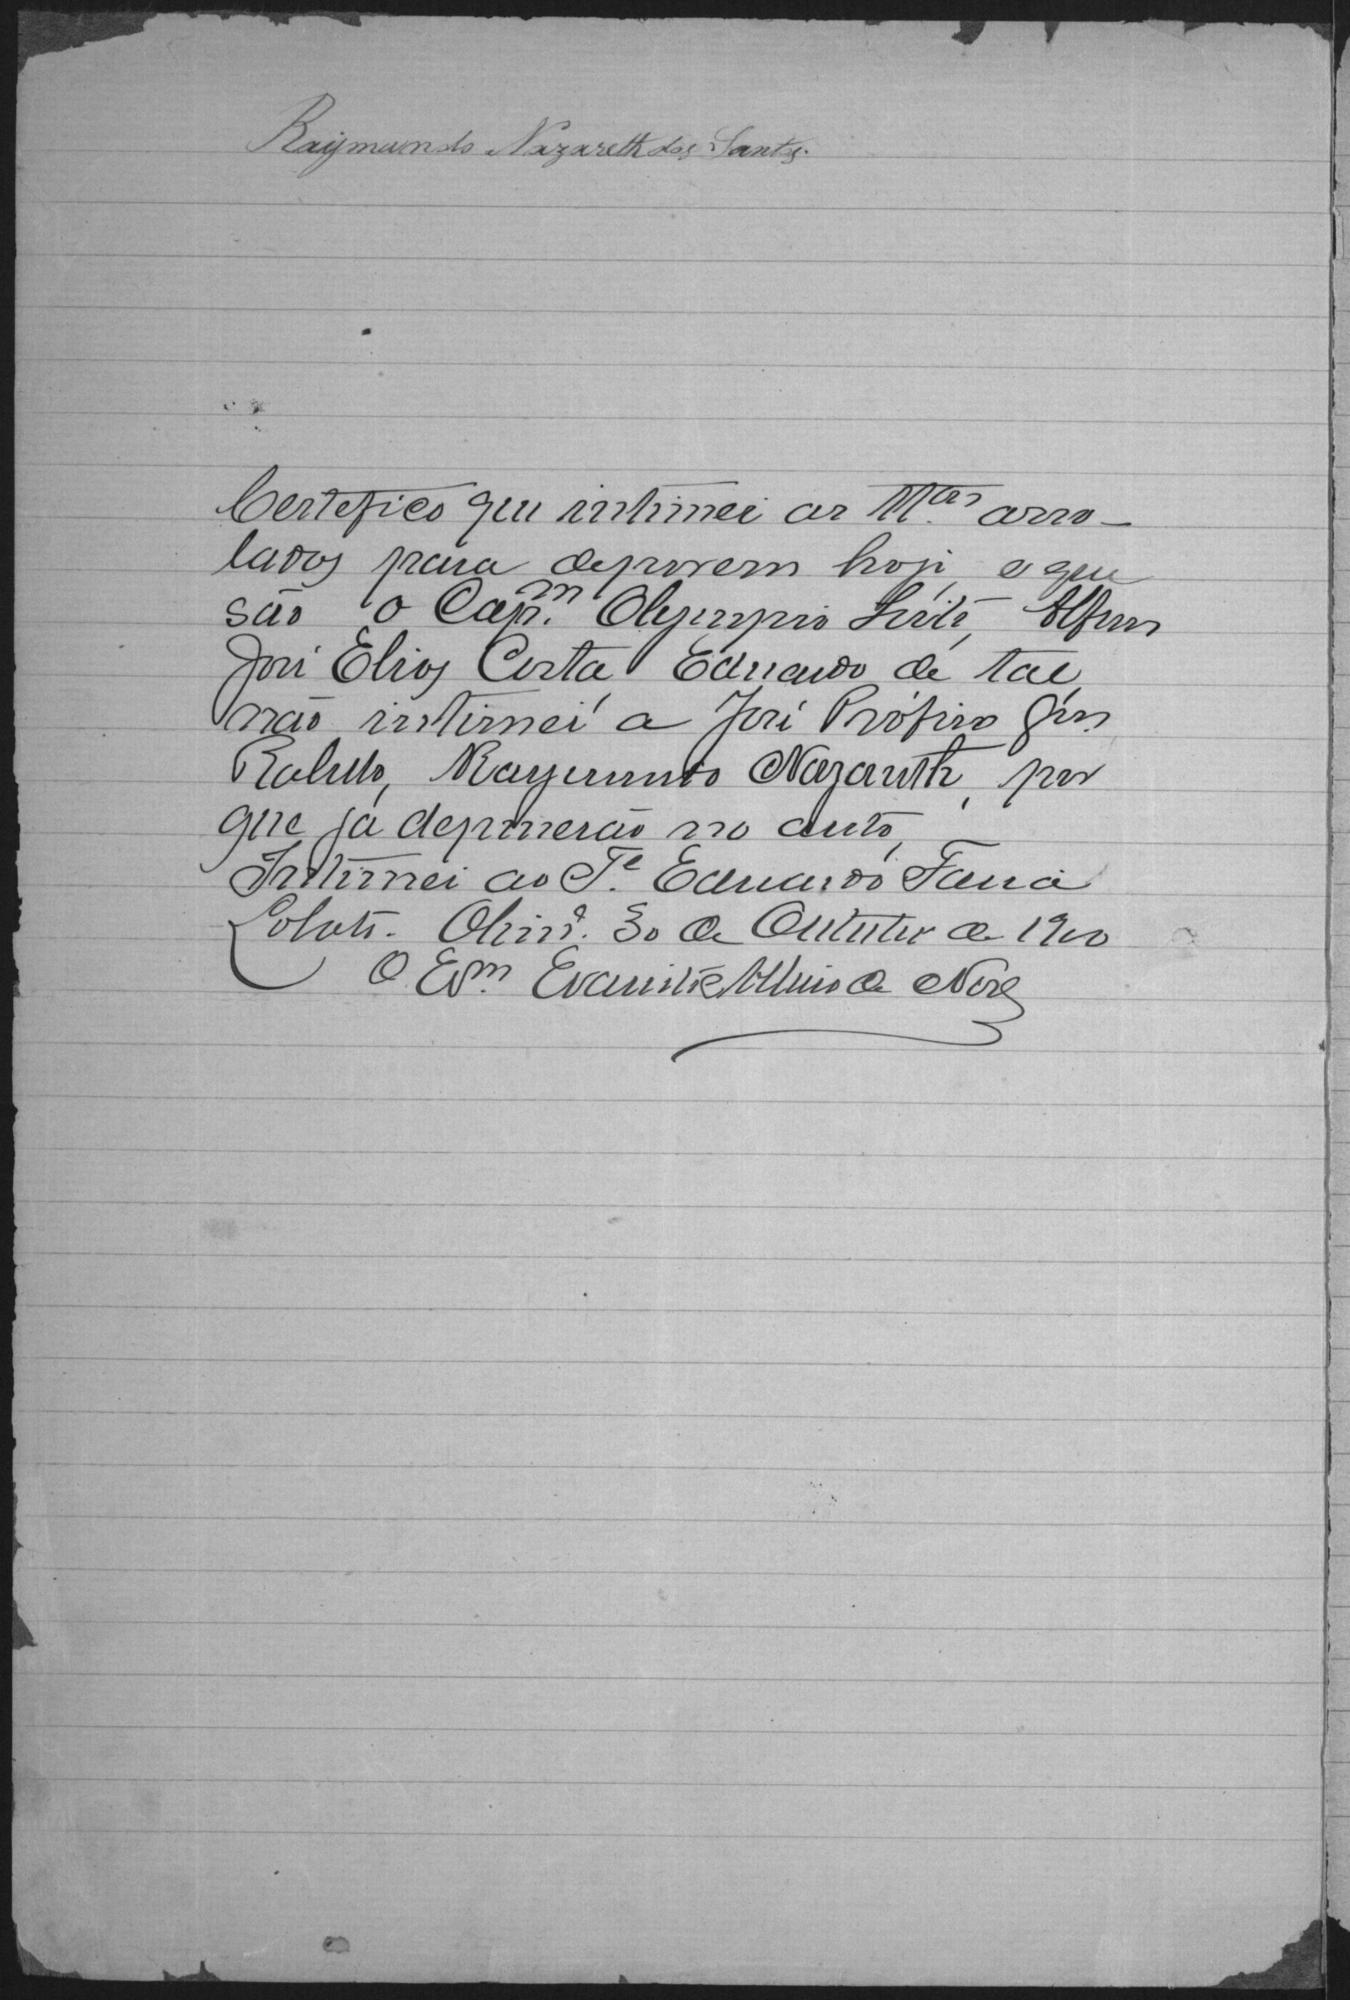 Raymundo Nazareth dos Santos.
Certefico que intimei as tt.as arro-
lados para deporem hoje, e que
são o Cap.m Olympio Leite, Alferes
José Elias Costa, Eduardo de tal,
não intimei a José Profiro
Rabello, Raymundo Nazareth, por
que já depuserão no auto,
Intimei ao T.e Eduardo Faria
Lobato. 30 de Outubro de 1900
O Es.m Evaristo de